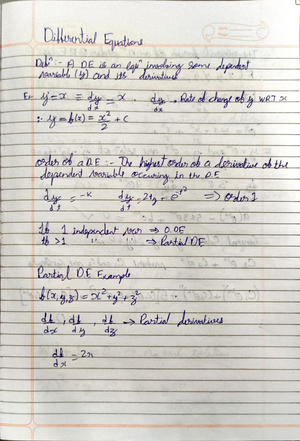 Differential Equations
Defⁿ :- A DE is an Eqⁿ involving some dependent
variable (y) and its derivatives
Ex y' = x ≡ dy/dx = x . dy/dx → Rate of change of y WRT x
∴ y = f(x) = x²/2 + C
Order of a DE :- The highest order of a derivative of the
dependent variable occurring in the D.E
dy/dt = -K dy/dt = 2ty - e^t² ⇒ Order 1
If 1 independent var ⇒ O.DE
If >1 " " " ⇒ Partial DE
Partial DE Example
f(x,y,z) = x² + y² + z²
df/dx , df/dy , df/dz → Partial derivatives
df/dx = 2x